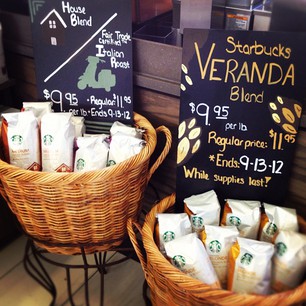 House
Blend
Fair Trade
Certified
Italian
Roast
$9.95
per lb
Regular $11.95
Ends: 9-13-12
Starbucks
VERANDA
Blend
$9.95
per lb
$11.95
Regular price:
*Ends: 9-13-12
While supplies last!*